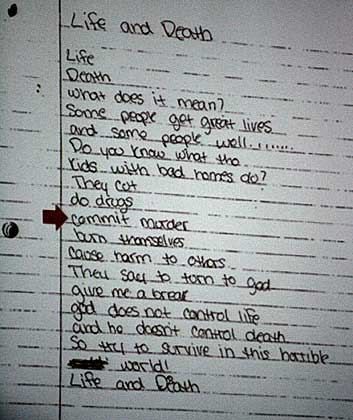 Life and Death
Life
Death
what does it mean?
Some people get great lives
and some people well.......
Do you know what the
kids with bad homes do?
They cut
do drugs
commit murder
burn themselves
cause harm to others
They say to turn to god
give me a break
god does not control life
and he doesn't control death
So try to survive in this horrible
world!
Life and Death